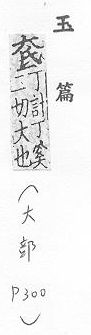 玉篇
奃丁計丁奚
二切大也
(大部 P300)